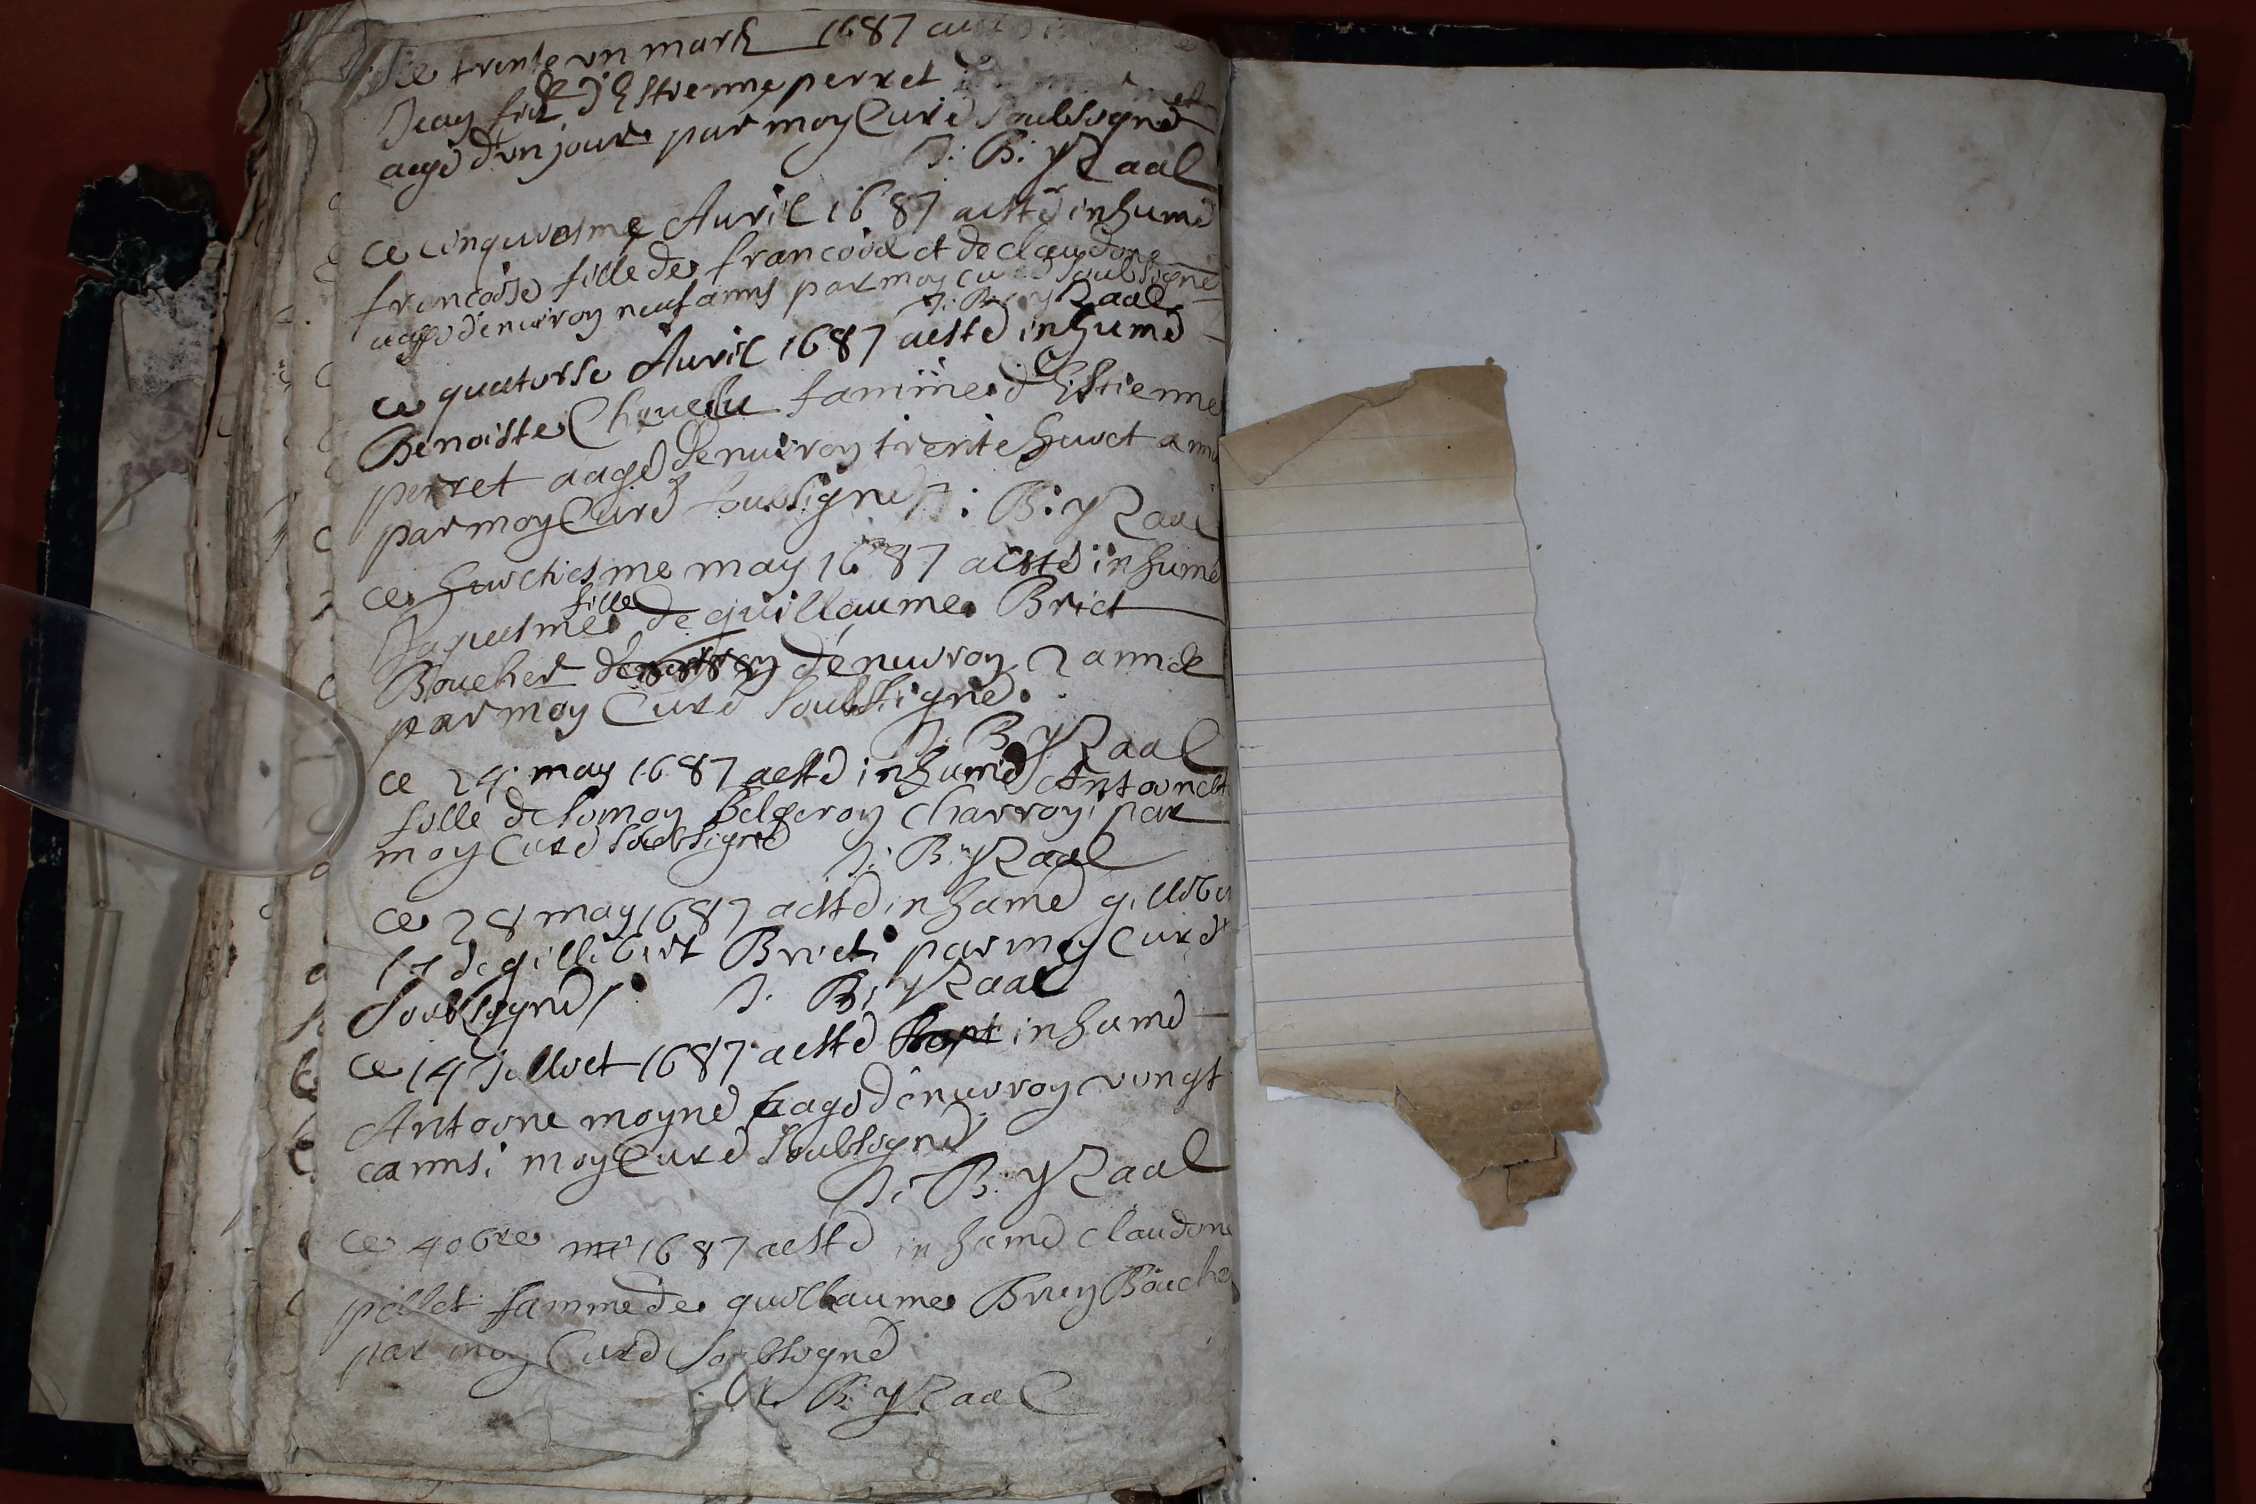 Ce trente un mars 1687
Jean filz d'Estienne perret
aagé d'un jour par moy Curé Soubsigné
J: B: yRaal
Ce cinquiesme Avril 1687 a esté inhumé
francoise fille de francois et de claudine
aagé d'enuiron neuf anns par moy curé soubsigné
J: B: yRaal
ce quatorse Avril 1687 a esté inhumé
Benoiste famme d'Estienne
perret aagé d'enuiron trente huict anns
par moy Curé soubsigné J: B: yRaal
ce huictiesme may 1687 a esté inhumé
Jaquesme fille de guillaume Brict
Boucher d'enuiron 2 anns
par moy Curé Soubsigné
J: B: yRaal
ce 24 may 1687 a esté inhumé Antoinette
fille de simon charron par
moy Curé Soubsigné J: B: yRaal
ce 28 may 1687 a esté inhumé gillibert
de gillibert Brict par moy Curé
Soubsigné J: B: yRaal
ce 14 Jullict 1687 a esté inhumé
Antoine moyne aagé d'enuiron vingt
anns moy Curé Soubsigné
J: B: yRaal
ce 4 obre 1687 a esté inhumé claudine
pillet famme de guillaume Briey Boucher
par moy Curé Soubsigné
J: B: yRaal